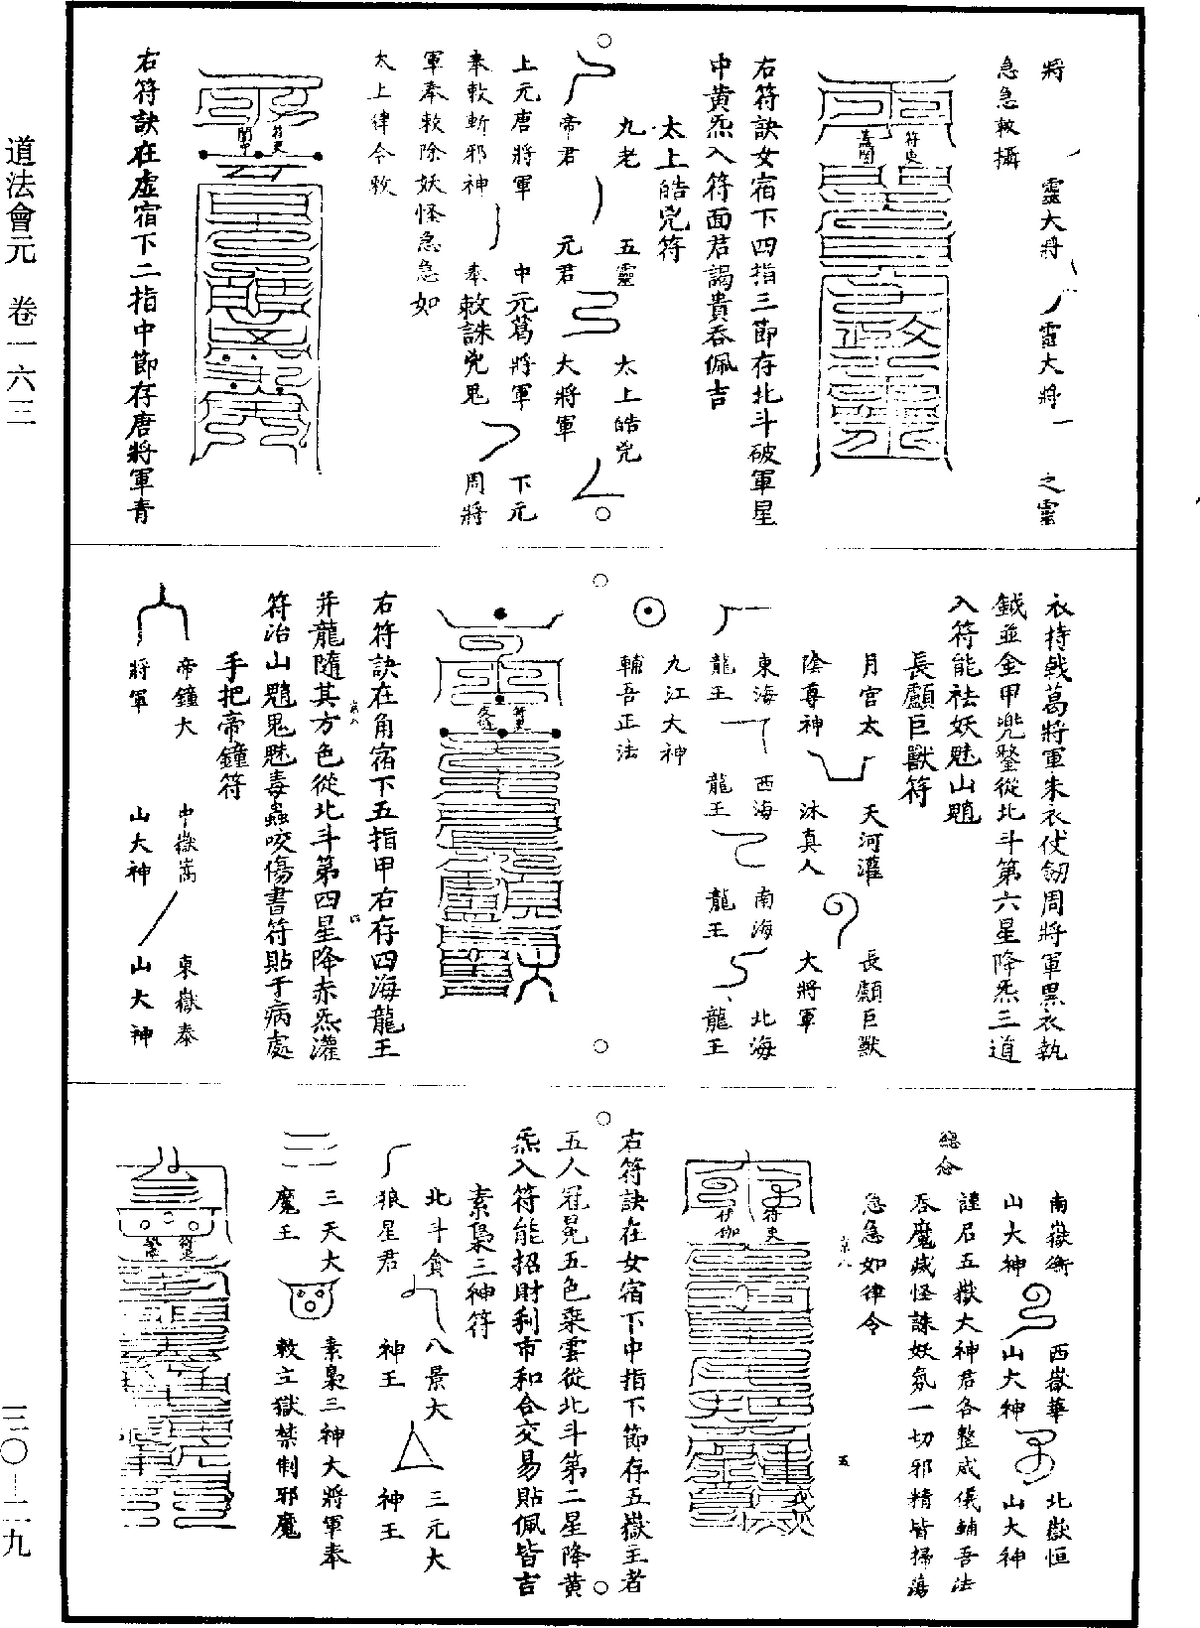 道法會元　卷一六三
三〇—二九
將　靈大將　雷大將　之靈
急急敕攝
符吏
右符訣女宿下四指三節存北斗破軍星
中黃炁入符面君謁貴吞佩吉
太上皓兇符
九老　五靈　太上皓兇
帝君　元君　大將軍
上元唐將軍　中元葛將軍　下元
奉敕斬邪神　奉敕誅兇鬼　周將
軍奉敕除妖怪急急如
太上律令敕
符吏
右符訣在虛宿下二指中節存唐將軍青
衣持戟葛將軍朱衣仗劒周將軍黑衣執
鉞並金甲兜鍪從北斗第六星降炁三道
入符能祛妖魅山魈
長顱巨獸符
月宮太　天河灌　長顱巨獸
陰尊神　沐真人　大將軍
東海　西海　南海　北海
龍王　龍王　龍王　龍王
九江大神
輔吾正法
符吏
右符訣在角宿下五指甲右存四海龍王
并龍隨其方色從北斗第四星降赤炁灌
符治山魈鬼魅毒蟲咬傷書符貼于病處
手把帝鐘符
帝鐘大　中嶽嵩　東嶽泰
將軍　山大神　山大神
南嶽衡　西嶽華　北嶽恒
山大神　山大神　山大神
總念
謹召五嶽大神君各整威儀輔吾法
吞魔滅怪誅妖氛一切邪精皆掃蕩
急急如律令
符吏
右符訣在女宿下中指下節存五嶽主者
五人冠冕五色乘雲從北斗第二星降黃
炁入符能招財利市和合交易貼佩皆吉
素梟三神符
北斗貪　八景大　三元大
狼星君　神王　神王
三天大　素梟三神大將軍奉
魔王　敕立獄禁制邪魔
符吏